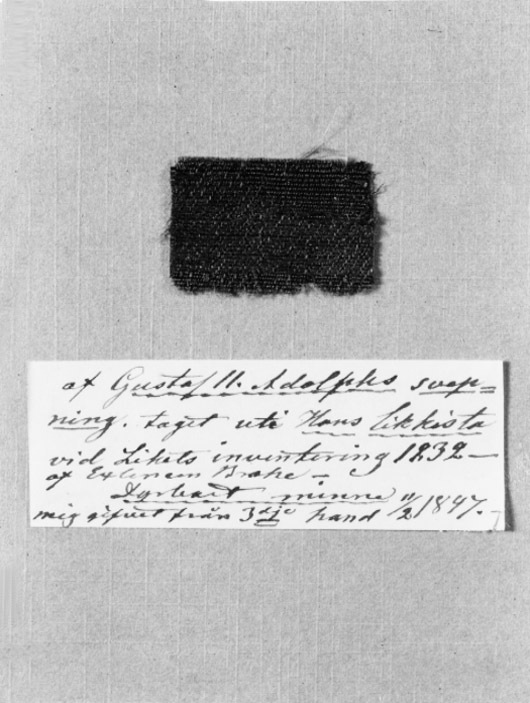 af Gustaf II. Adolphs svep=
ning. taget uti Hans likkista
vid Likets inventering 1832 —
af Excellencen Brahe —
Dyrbart minne
mig gifvet från 3dje hand 11/2 1847. —